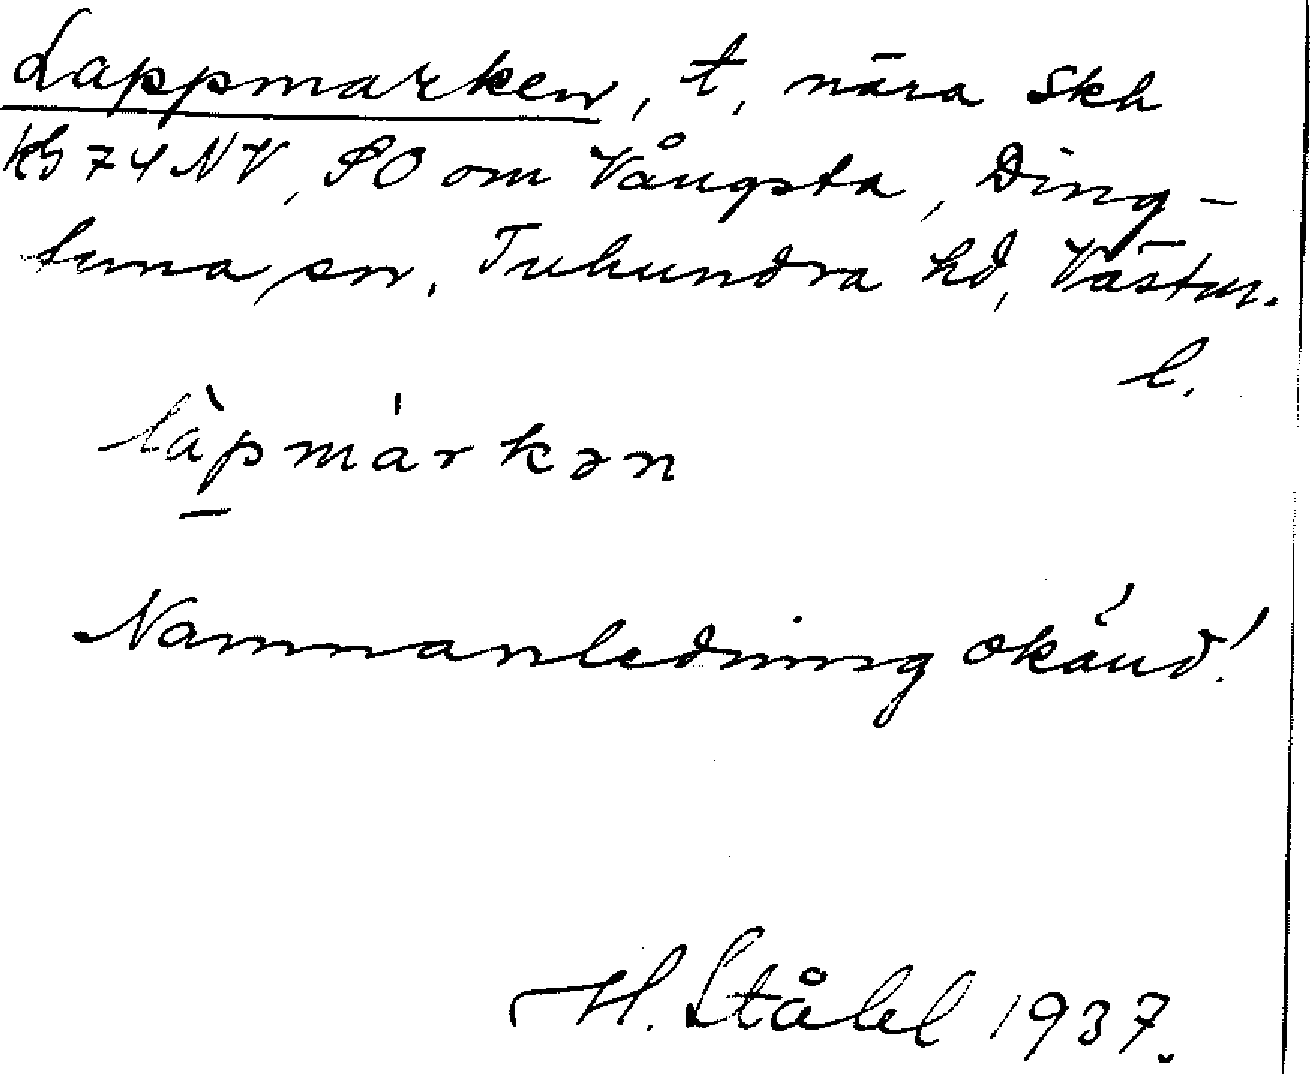 Lappmarken, t, nära Skh
Kb 74 NV, SO om Vångsta, Ding-
tuna sn, Tuhundra hd, Västm.
l.
làpmárkən
Namnanledning okänd!
H. Ståhl 1937.